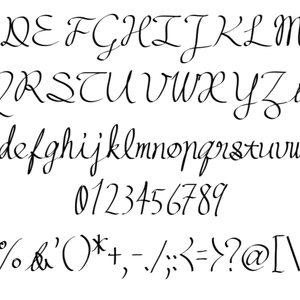 DEFGHIJKLM
QRSTUVWXYZ
defghijklmnopqrstuvw
0123456789
% &'()*+,-./;:<=>?@[\